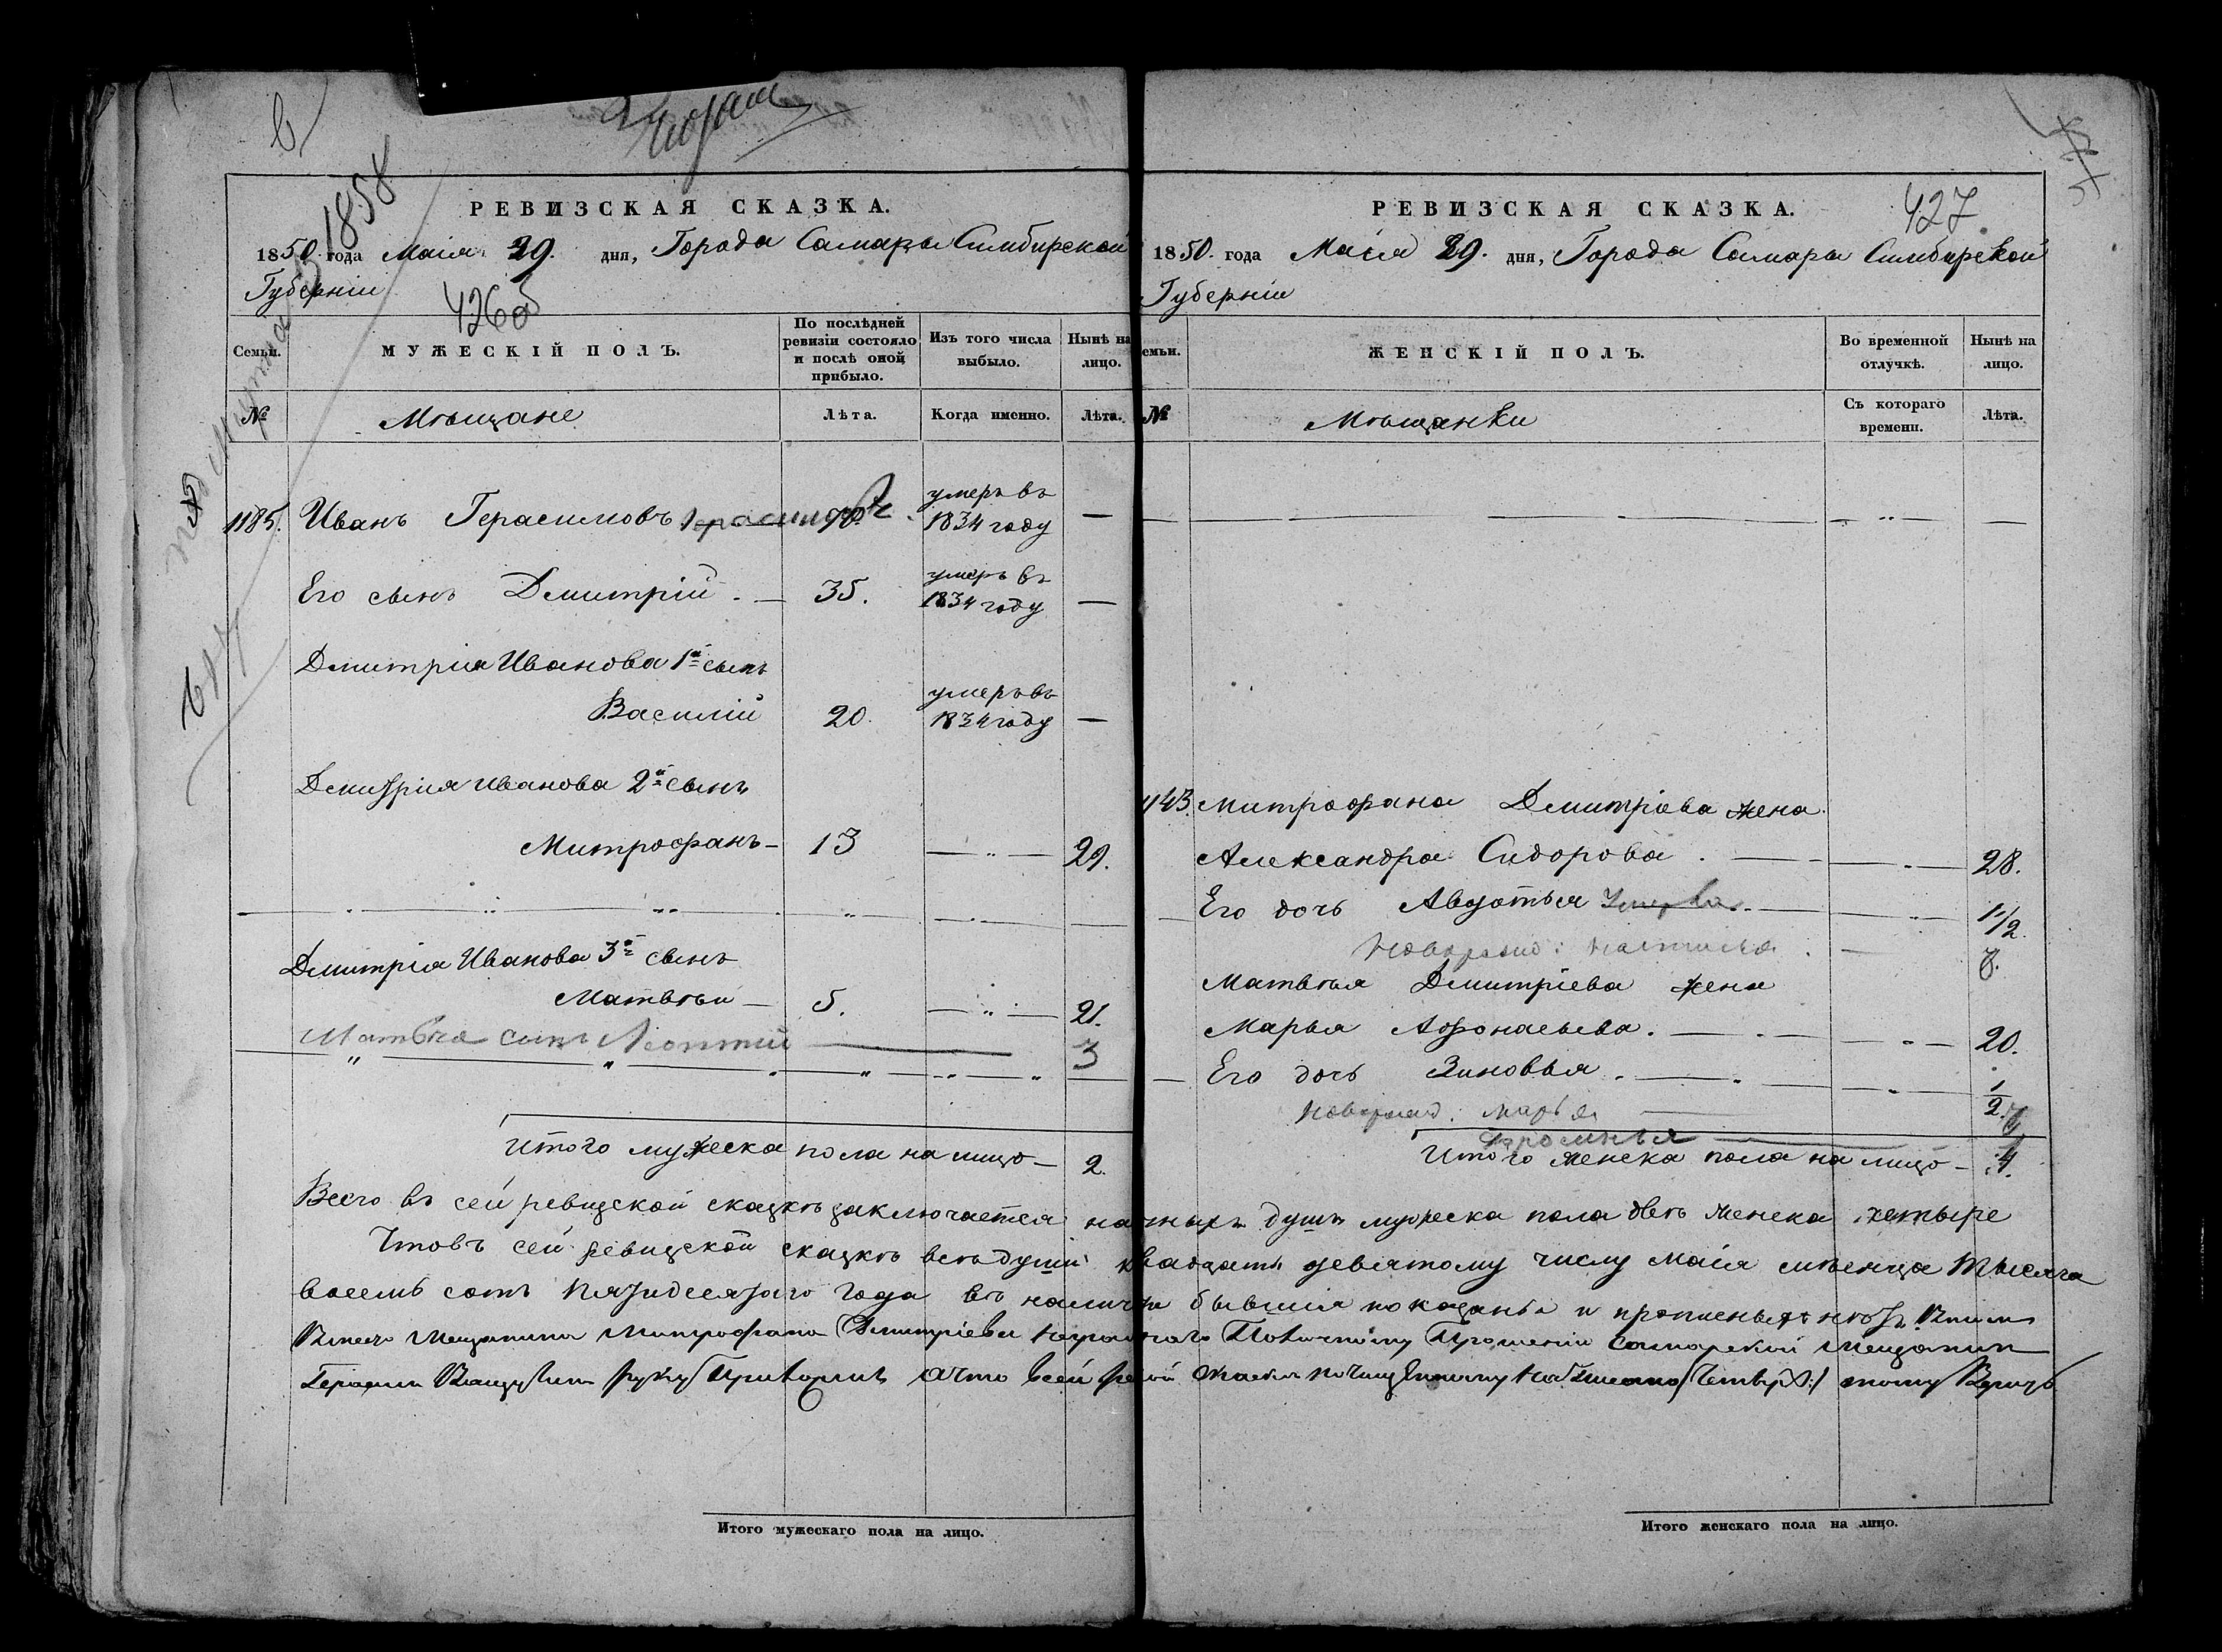 1858
РЕВИЗСКАЯ СКАЗКА.
1850 года Маія 29. дня, Города Самары Симбирской
Губерніи
426об
Семьи.
МУЖЕСКІЙ ПОЛЪ.
По послѣдней
ревизіи состояло
и послѣ оной
прибыло.
Изъ того числа
выбыло.
Нынѣ на
лицо.
№
Мѣщане
Лѣта.
Когда именно.
Лѣта.
1185. Иванъ Герасимовъ 70. умеръ въ
1834 году —
Его сынъ Дмитрій. — 35. умеръ въ
1834 году —
Дмитрія Иванова 1й сынъ
Василій 20. умеръ въ
1834 году —
Дмитрія Иванова 2й сынъ
Митрофанъ — 13 — „ — 29.
Дмитрія Иванова 3й сынъ
Матвѣй — 5. — „ — 21.
Матвѣя сынъ Леонтій 3
Итого мужеска пола на лицо — 2.
427
РЕВИЗСКАЯ СКАЗКА.
1850. года Маія 29. дня, Города Самары Симбирской
Губерніи
емьи.
ЖЕНСКІЙ ПОЛЪ.
Во временной
отлучкѣ.
Нынѣ на
лицо.
№
Мѣщанки
Съ котораго
времени.
Лѣта.
1143. Митрофана Дмитріева жена
Александра Сидорова. — 28.
Его дочь Авдотья умерла. — 1 1/2
Новорожд: 7.
Матвѣя Дмитріева жена
Марья Афонасьева. — 20.
Его дочь Зиновья. — 1/2.
Новорожд: Марья
Итого женска пола на лицо — 4.
Всего въ сей ревизской сказкѣ заключается наличныхъ душъ мужеска пола двѣ женска четыре
Что въ сей ревизской сказкѣ всѣ души къ двадцать девятому числу Маія мѣсяца тысяча
восемь сотъ пятидесятаго года въ наличіи бывшія показаны и прописныхъ нѣтъ.
Мещанина Митрофана Дмитріева неграмотнаго По личному Прошенію Самарской Мещанин
Герасим руку Приложилъ а что въ сей
Итого мужескаго пола на лицо.
Итого женскаго пола на лицо.